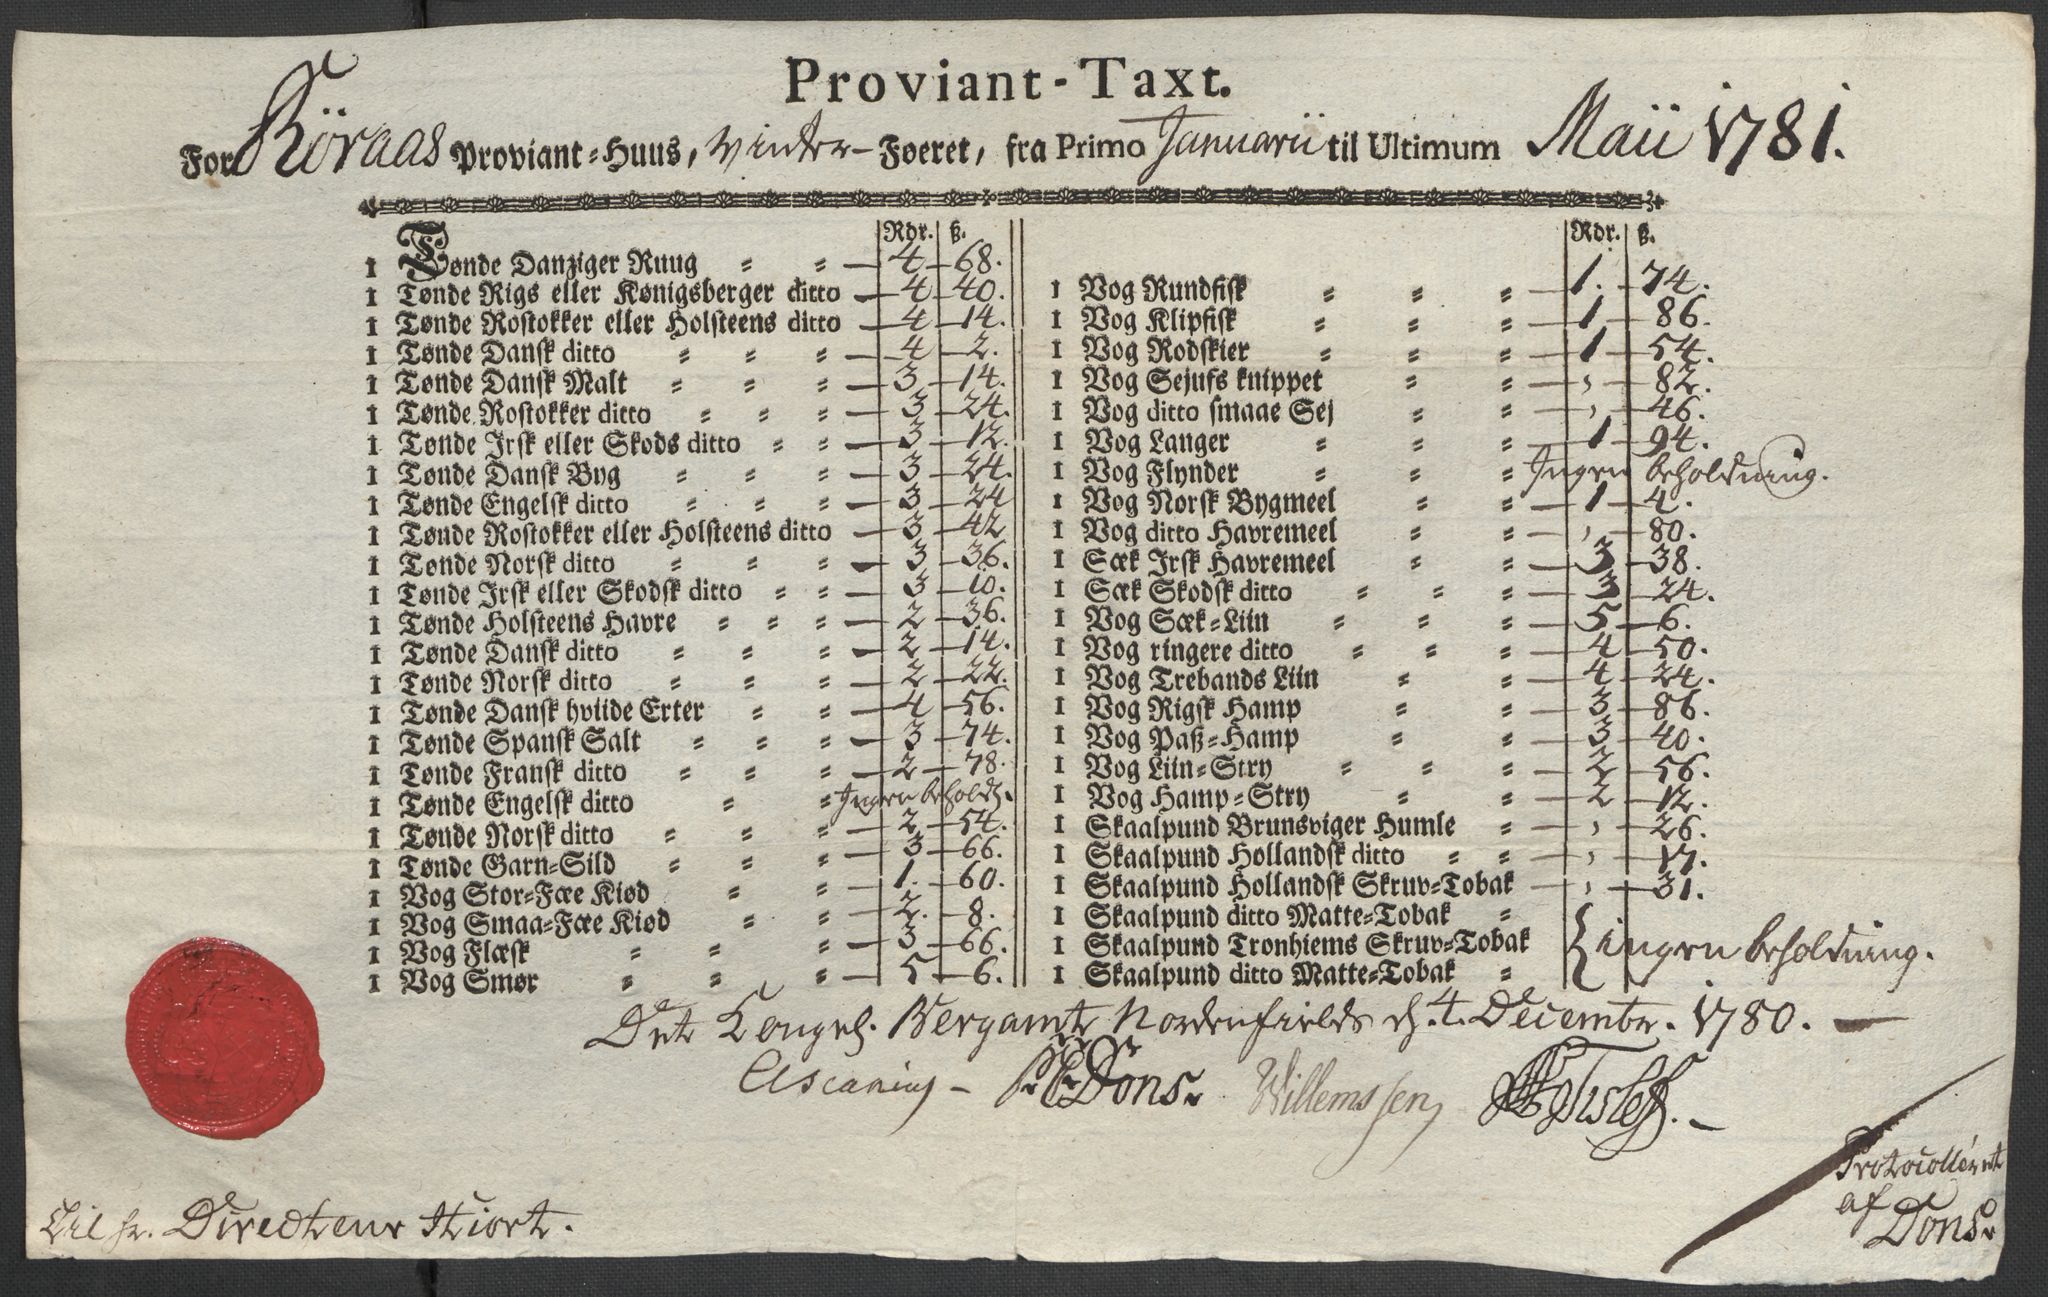 Proviant-Taxt.
For Röraas Proviant-Huus, Vinter-Foeret, fra Primo Januarii til Ultimum Maii 1781.
Rdr. ß.
1 Tønde Danziger Ruug 4 68.
1 Tønde Rigs eller Kønigsberger ditto 4 40.
1 Tønde Rostokker eller Holsteens ditto 4 14.
1 Tønde Dansk ditto 4 2.
1 Tønde Dansk Malt 3 14.
1 Tønde Rostokker ditto 3 24.
1 Tønde Irsk eller Skods ditto 3 12.
1 Tønde Dansk Byg 3 24.
1 Tønde Engelsk ditto 3 24
1 Tønde Rostokker eller Holsteens ditto 3 42
1 Tønde Norsk ditto 3 36.
1 Tønde Irsk eller Skodsk ditto 3 10.
1 Tønde Holsteens Havre 2 36.
1 Tønde Dansk ditto 2 14.
1 Tønde Norsk ditto 2 22.
1 Tønde Dansk hviide Erter 4 56.
1 Tønde Spansk Salt 3 74.
1 Tønde Fransk ditto 2 78.
1 Tønde Engelsk ditto Ingen beholdn.
1 Tønde Norsk ditto 2 54.
1 Tønde Garn-Sild 3 66.
1 Vog Stor-Fæe Kiød 1. 60.
1 Vog Smaa-Fæe Kiød 2. 8.
1 Vog Flæsk 3 66.
1 Vog Smør 5 6.
Rdr. ß.
1 Vog Rundfisk 1. 74.
1 Vog Klipfisk 1 86.
1 Vog Rodskier 1 54.
1 Vog Sejufs knippet , 82.
1 Vog ditto smaae Sej , 46.
1 Vog Langer 1 94.
1 Vog Flynder Ingen beholdning.
1 Vog Norsk Bygmeel 1 4.
1 Vog ditto Havremeel , 80.
1 Sæk Irsk Havremeel 3 38.
1 Sæk Skodsk ditto 3 24.
1 Vog Sæk-Liin 5 6.
1 Vog ringere ditto 4 50.
1 Vog Trebands Liin 4 24.
1 Vog Rigsk Hamp 3 86.
1 Vog Paß-Hamp 3 40.
1 Vog Liin-Stry 2 56.
1 Vog Hamp-Stry 2 12.
1 Skaalpund Brunsviger Humle , 26.
1 Skaalpund Hollandsk ditto , 17.
1 Skaalpund Hollandsk Skruv-Tobak , 31.
1 Skaalpund ditto Matte-Tobak
1 Skaalpund Tronhiems Skruv-Tobak ingen beholdning.
1 Skaalpund ditto Matte-Tobak
Det Kongel. Bergamt Nordenfields d. 4. Decembr. 1780.
Ascanius P. E. Dons. Willemssen
Protocolleret
af
Dons.
Til hr. Directeur Hiort.